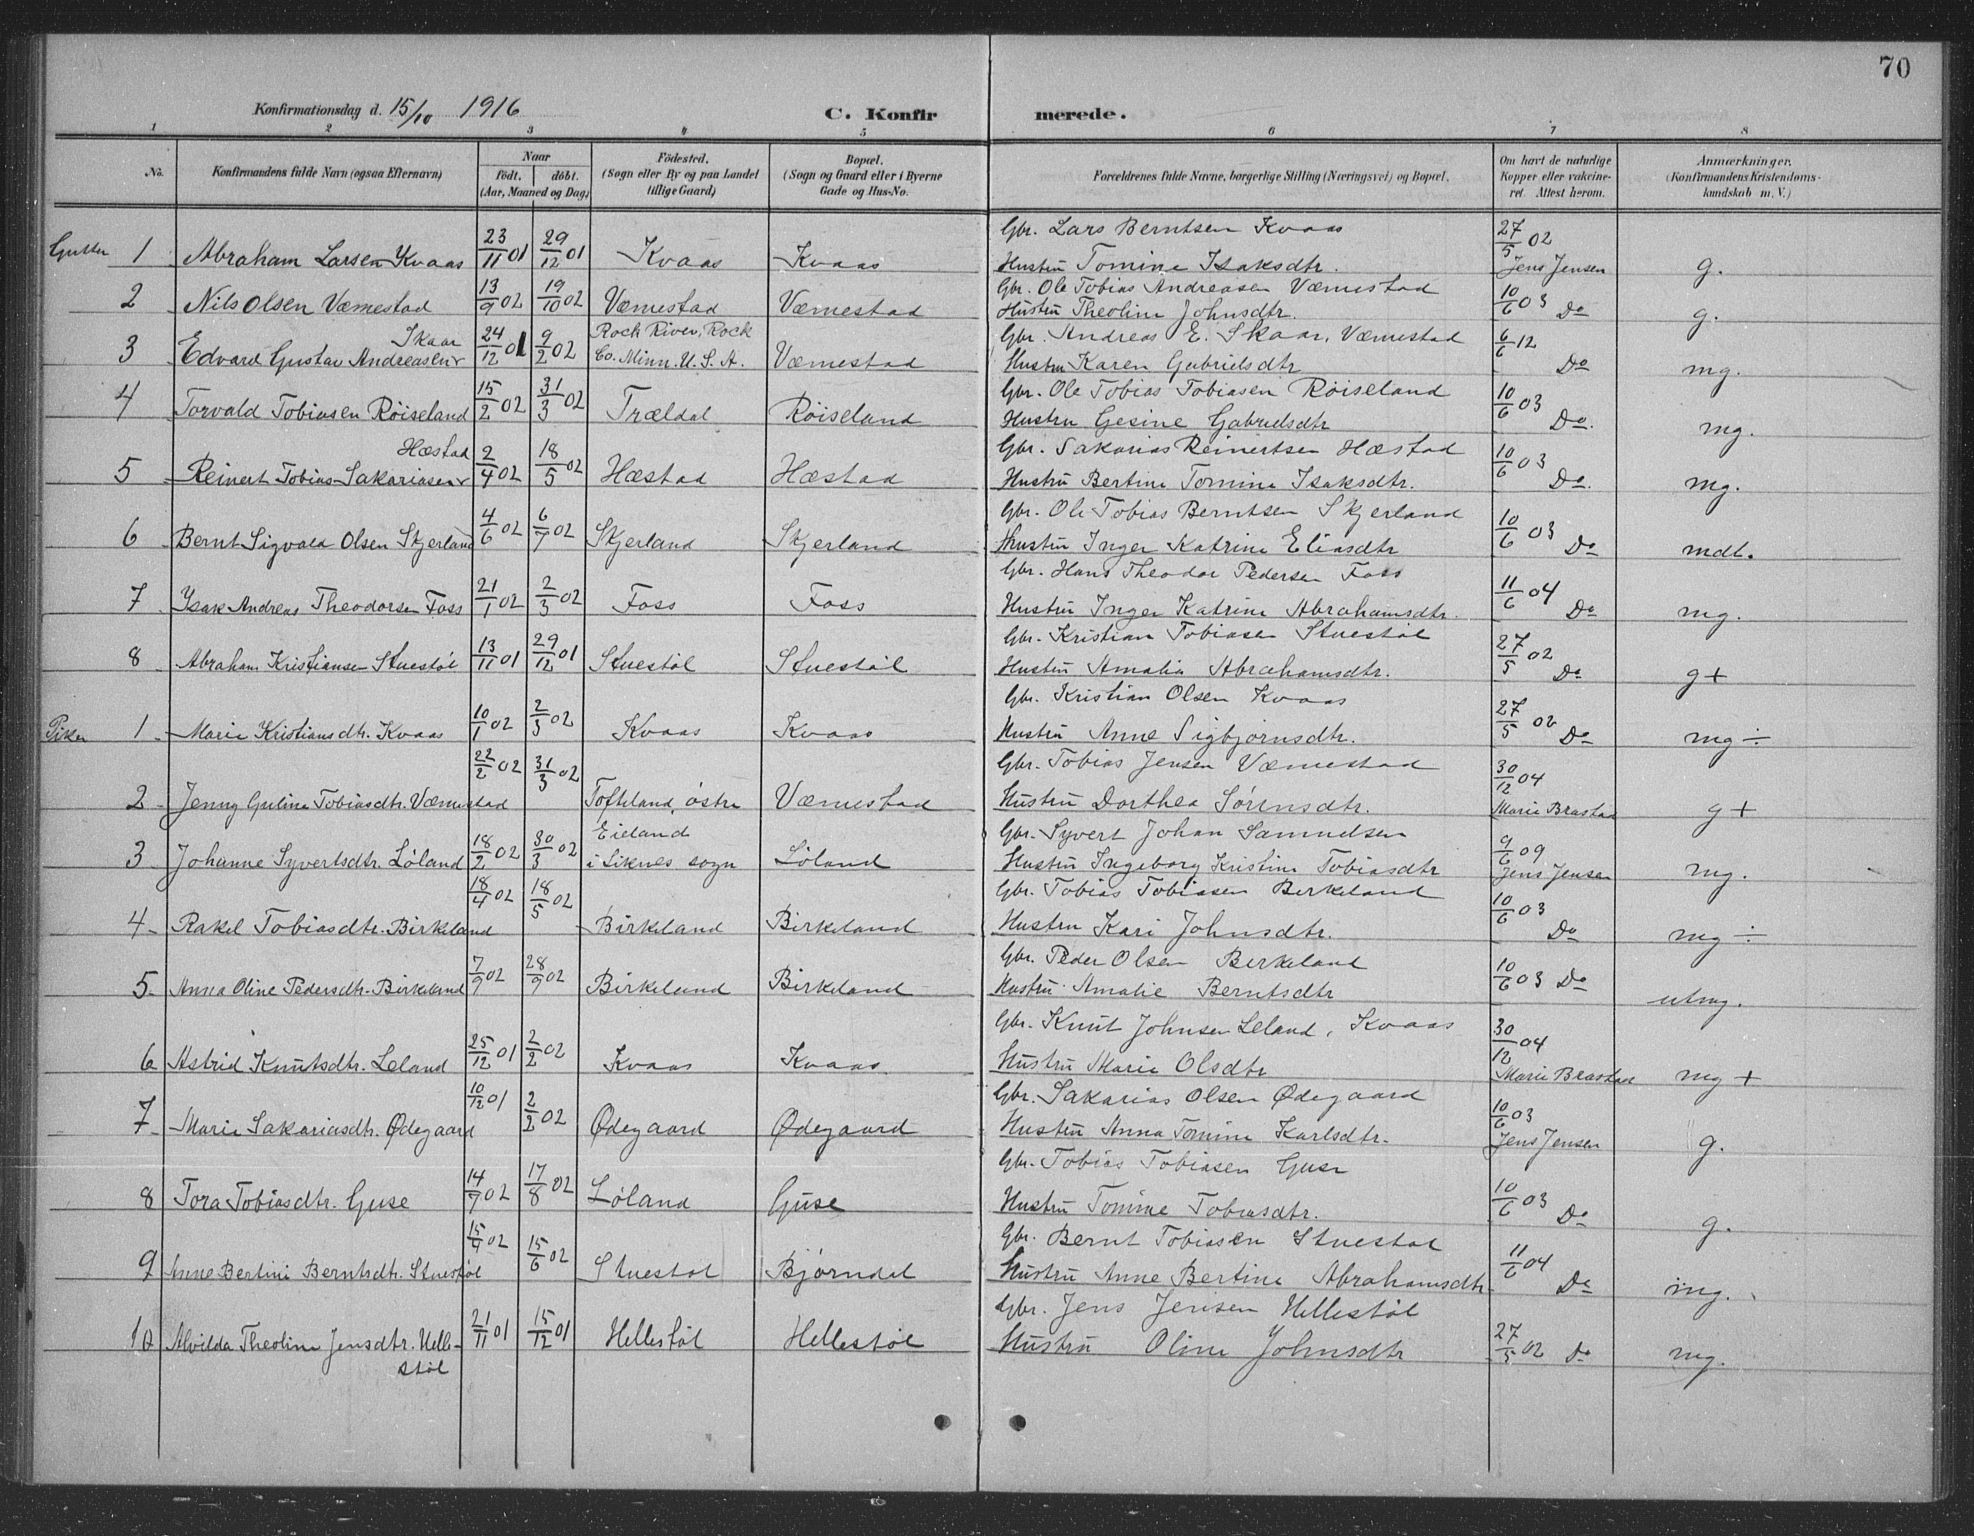 70
Konfirmationsdag d. 15/10 1916 C. Konfirmerede.
1 2 3 4 5 6 7 8
No. Konfirmandens fulde Navn (ogsaa Efternavn) Naar født. døbt. (Aar, Maaned og Dag) Fødested. (Sogn eller By og paa Landet tillige Gaard) Bopæl. (Sogn og Gaard eller i Byerne Gade og Hus-No. Forældrenes fulde Navne, borgerlige Stilling (Næringsvei) og Bopæl. Om havt de naturlige Kopper eller vakcineret. Attest herom. Anmærkninger. (Konfirmandens Kristendomskundskab m. V.)
Gutter 1 Abraham Larsen Kvaas 23/11 01 29/12 01 Kvaas Kvaas Gbr. Lars Berntsen Kvaas
Hustru Tomine Isaksdtr. 27/5 02 Jens Jensen g.
2 Nils Olsen Væmestad 13/9 02 19/10 02 Væmestad Væmestad Gbr. Ole Tobias Andreasen Væmestad
Hustru Theoline Johnsdtr. 10/6 03 Do g.
3 Edvard Gustav Andreasen Skaar 24/12 01 9/2 02 Rock River, Rock Co. Minn. U.S.A. Væmestad Gbr. Andreas E. Skaar, Væmestad
Hustru Karen Gabrielsdtr 6/6 12 Do mg.
4 Torvald Tobiasen Røiseland 15/2 02 31/3 02 Trældal Røiseland Gbr. Ole Tobias Tobiasen Røiseland
Hustru Gesine Gabrielsdtr 10/6 03 Do. mg.
5 Reinert Tobias Sakariasen Hæstad 2/4 02 18/5 02 Hæstad Hæstad Gbr. Sakarias Reinertsen Hæstad
Hustru Bertine Tomine Isaksdtr. 10/6 03 Do. mg.
6 Bernt Sigvald Olsen Skjerland 4/6 02 6/7 02 Skjerland Skjerland Gbr. Ole Tobias Berntsen Skjerland
Hustru Inger Katrine Eliasdtr 10/6 03 Do mdt.
7 Isak Andreas Theodorsen Foss 21/1 02 2/3 02 Foss Foss Gbr. Hans Theodor Pedersen Foss
Hustru Inger Katrine Abrahamsdtr. 11/6 04 Do mg.
8 Abraham Kristiansen Stuestøl 13/11 01 29/12 01 Stuestøl Stuestøl Gbr. Kristian Tobiasen Stuestøl
Hustru Amalia Abrahamsdtr. 27/5 02 Do g +
Piker 1 Marie Kristiansdtr. Kvaas 10/1 02 2/3 02 Kvaas Kvaas Gbr. Kristian Olsen Kvaas
Hustru Anne Sigbjørnsdtr. 27/5 02 Do mg ÷
2 Jenny Guline Tobiasdtr. Væmestad 22/2 02 31/3 02 Tofteland, østre Væmestad Gbr. Tobias Jensen Væmestad
Hustru Dorthea Sørensdtr. 30/12 04 Marie Brastad g +
3 Johanne Syvertsdtr. Løland 18/2 02 30/3 02 Eieland i Liknes sogn Løland Gbr. Syvert Johan Samuelsen
Hustru Ingeborg Kristine Tobiasdtr 9/6 09 Jens Jensen mg.
4 Rakel Tobiasdtr. Birkeland 18/4 02 18/5 02 Birkeland Birkeland Gbr. Tobias Tobiasen Birkeland
Hustru Kari Johnsdtr. 10/6 03 Do mg ÷
5 Anna Oline Pedersdtr. Birkeland 7/9 02 28/9 02 Birkeland Birkeland Gbr. Peder Olsen Birkeland
Hustru Amalie Berntsdtr 10/6 03 Do utmg.
6 Astrid Knutsdtr. Leland 25/12 01 2/2 02 Kvaas Kvaas Gbr. Knut Johnsen Leland, Kvaas
Hustru Marie Olsdtr 30/12 04 Marie Brastad mg +
7 Marie Sakariasdtr. Ødegaard 10/12 01 2/2 02 Ødegaard Ødegaard Gbr. Sakarias Olsen Ødegaard
Hustru Anna Tomine Karlsdtr. 10/6 03 Jens Jensen g.
8 Tora Tobiasdtr. Guse 14/7 02 17/8 02 Løland Guse Gbr. Tobias Tobiasen Guse
Hustru Tomine Tobiasdtr. 10/6 03 Do g.
9 Anne Bertine Berntsdtr. Stuestøl 15/4 02 15/6 02 Stuestøl Bjørndal Gbr. Bernt Tobiasen Stuestøl
Hustru Anne Bertine Abrahamsdtr 11/6 04 Do mg.
10 Alvilda Theoline Jensdtr. Helle- 21/11 01 15/12 01 Hellestøl Hellestøl Gbr. Jens Jensen Hellestøl
støl Hustru Oline Johnsdtr 27/5 02 Do mg.